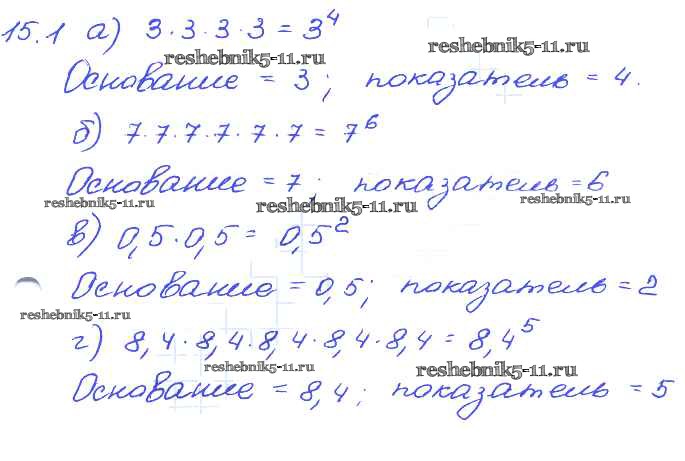 15.1 а) 3·3·3·3 = 3⁴
reshebnik5-11.ru
reshebnik5-11.ru
Основание = 3; показатель = 4.
б) 7·7·7·7·7·7 = 7⁶
Основание = 7; показатель = 6
reshebnik5-11.ru
reshebnik5-11.ru
reshebnik5-11.ru
в) 0,5·0,5 = 0,5²
Основание = 0,5; показатель = 2
reshebnik5-11.ru
г) 8,4·8,4·8,4·8,4·8,4 = 8,4⁵
reshebnik5-11.ru
reshebnik5-11.ru
Основание = 8,4; показатель = 5